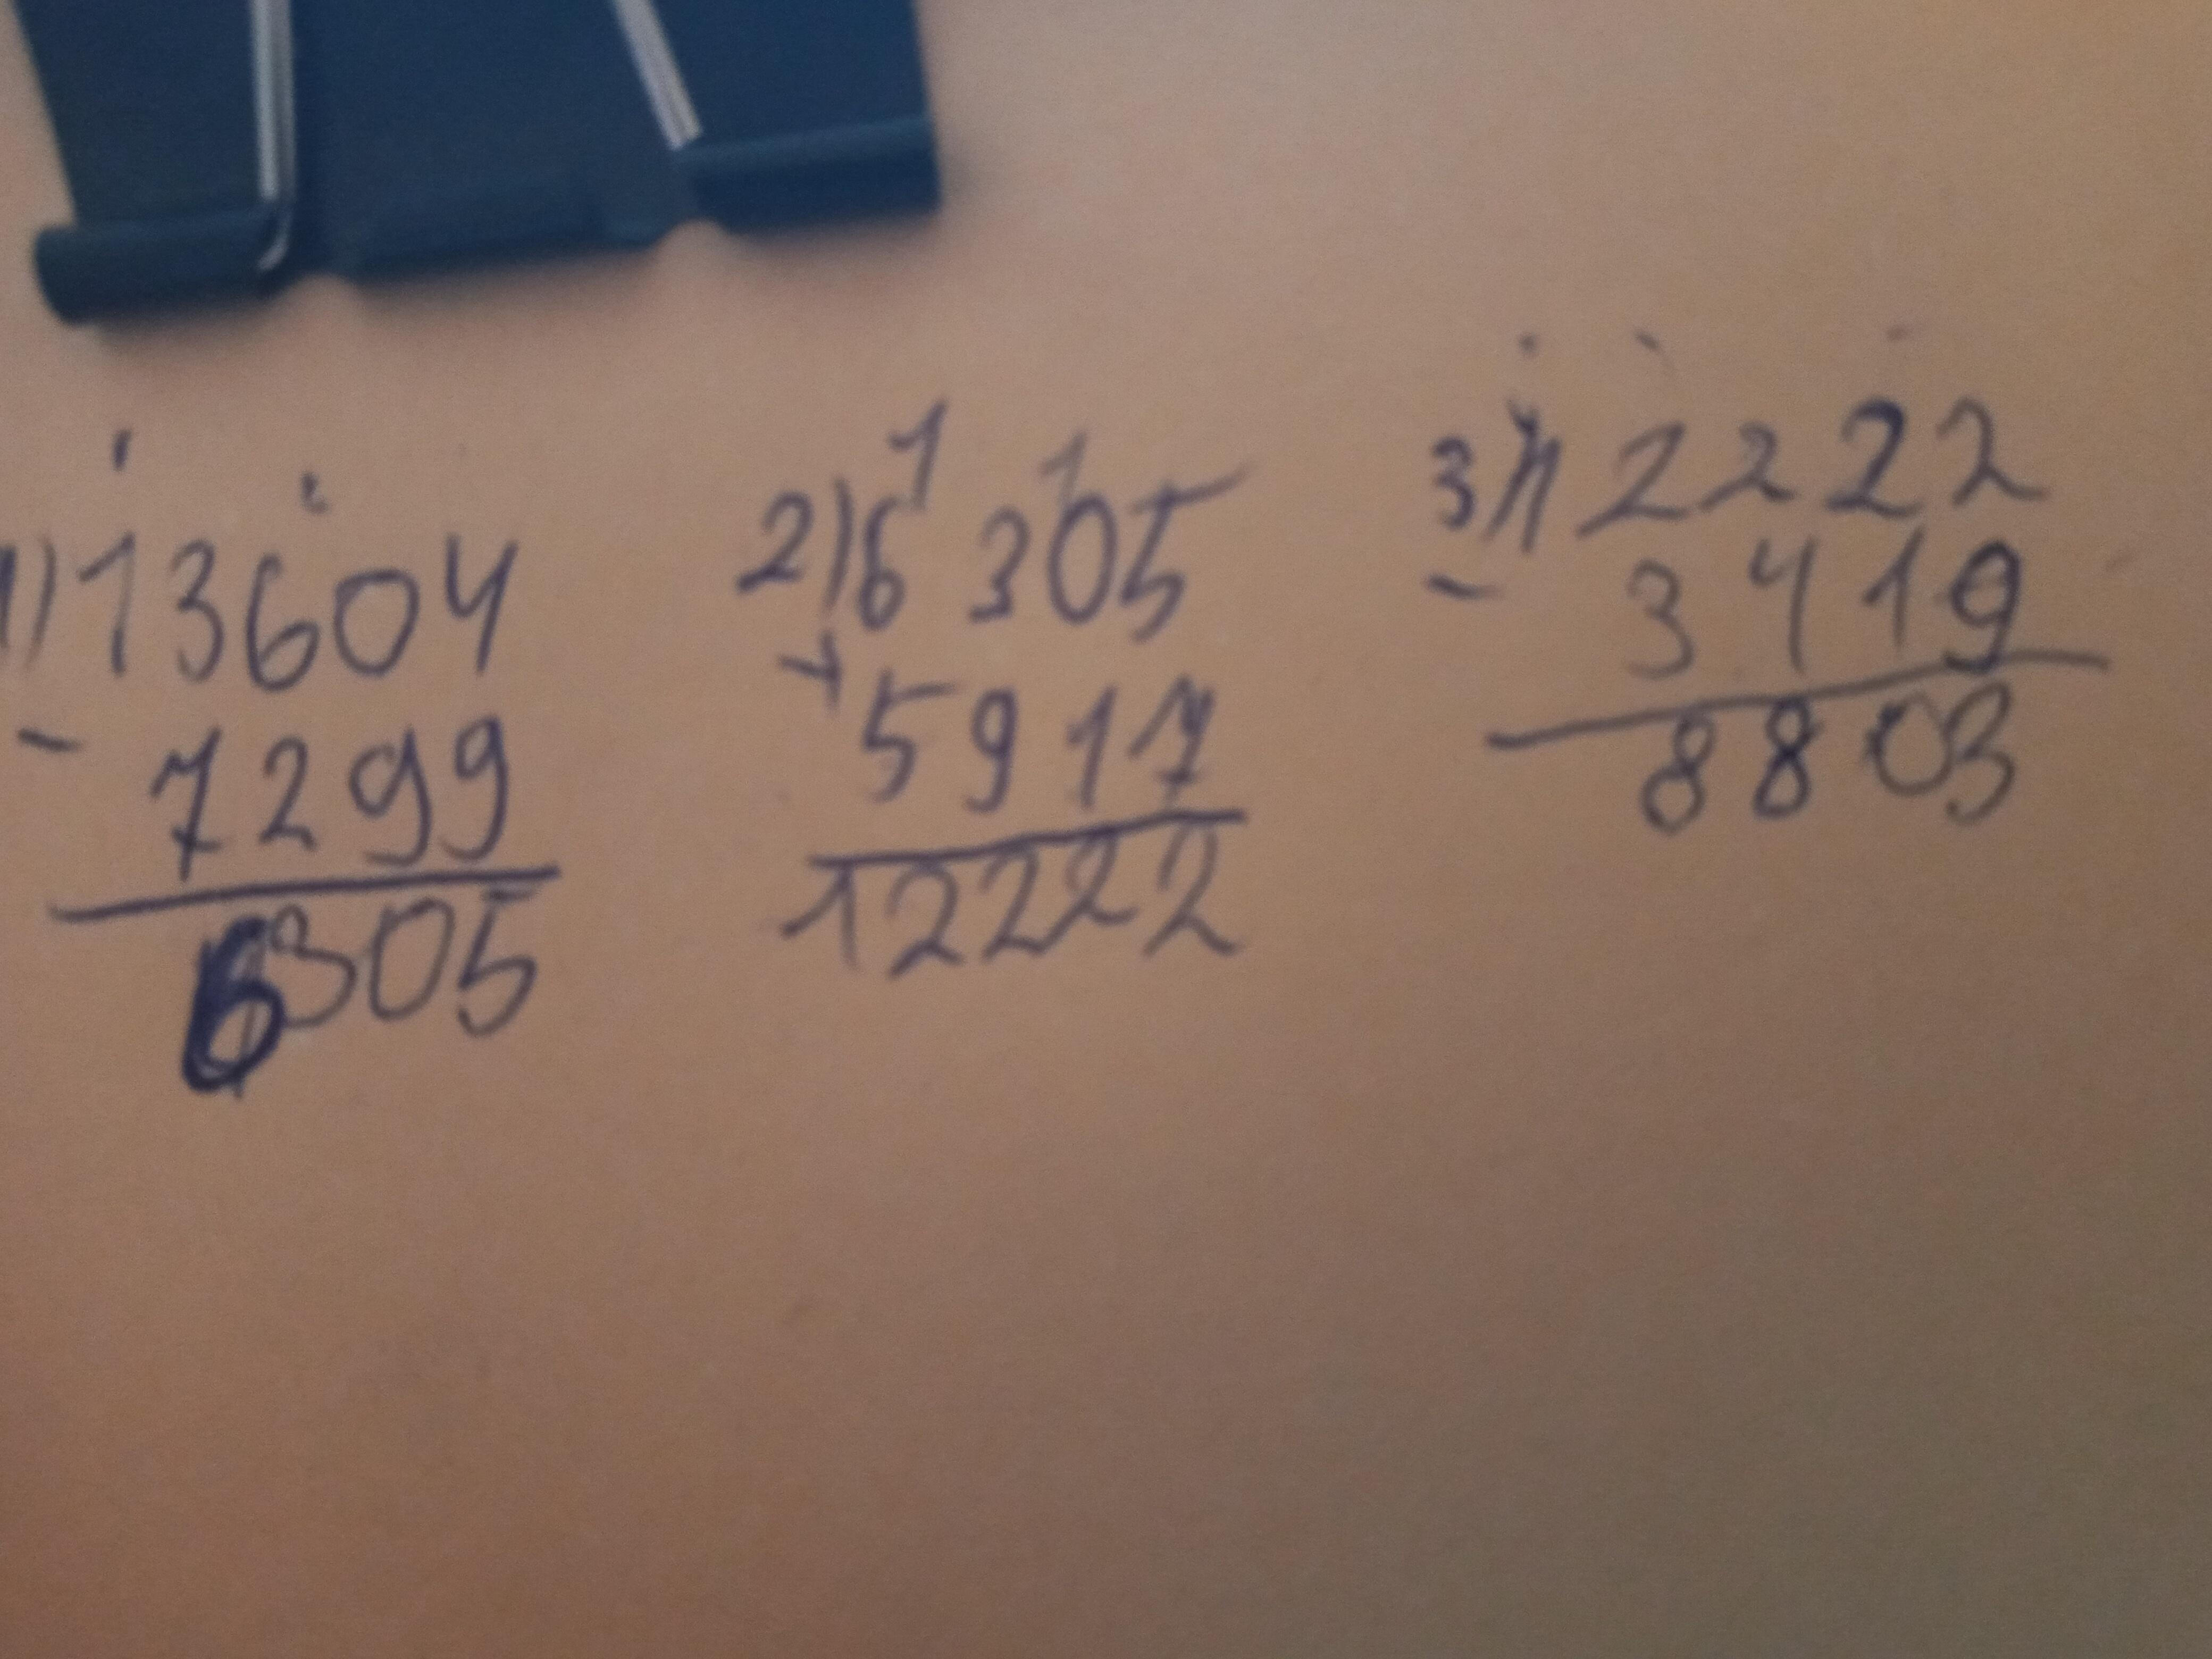 1) 13604
- 7299
6305
2) 6305
+ 5917
12222
3) 12222
- 3419
8803